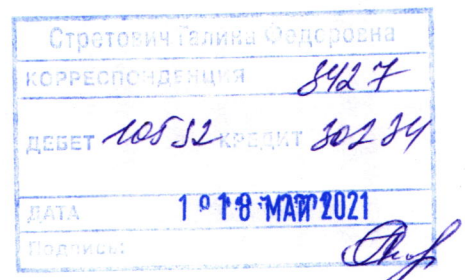 Стретович Галина Федоровна
КОРРЕСПОНДЕНЦИЯ 8427
ДЕБЕТ 10532 КРЕДИТ 30234
ДАТА 18 МАЙ 2021
Подпись: